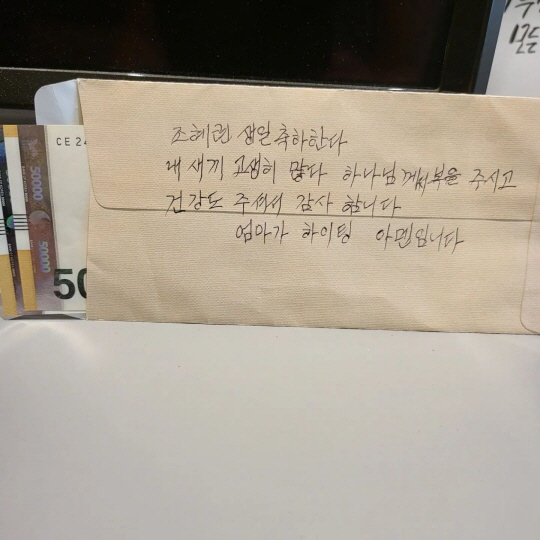 조혜련 생일축하한다
내 새끼 고생히 많다 하나님께서복을 주시고
건강도 주셔서 감사 합니다
엄마가 하이팅 아멘입니다
CE 24
50000
50000
50